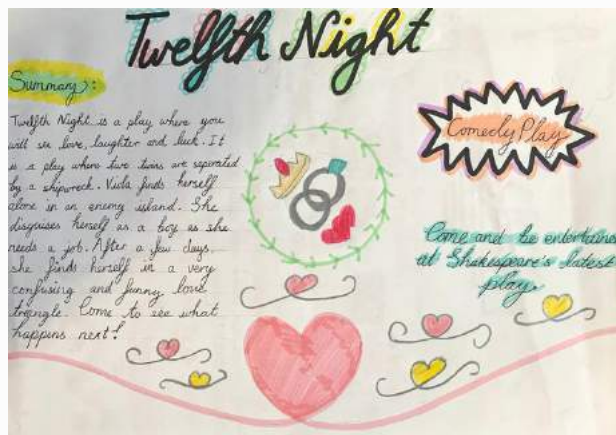 Twelfth Night
Summary:
Twelfth Night is a play where you
will see love, laughter and luck. It
is a play where two twins are seperated
by a shipwreck. Viola finds herself
alone in an enemy island. She
disguises herself as a boy as she
needs a job. After a few days,
she finds herself in a very
confusing and funny love
triangle. Come to see what
happens next!
Comedy Play
Come and be entertained
at Shakespeare's latest
play.